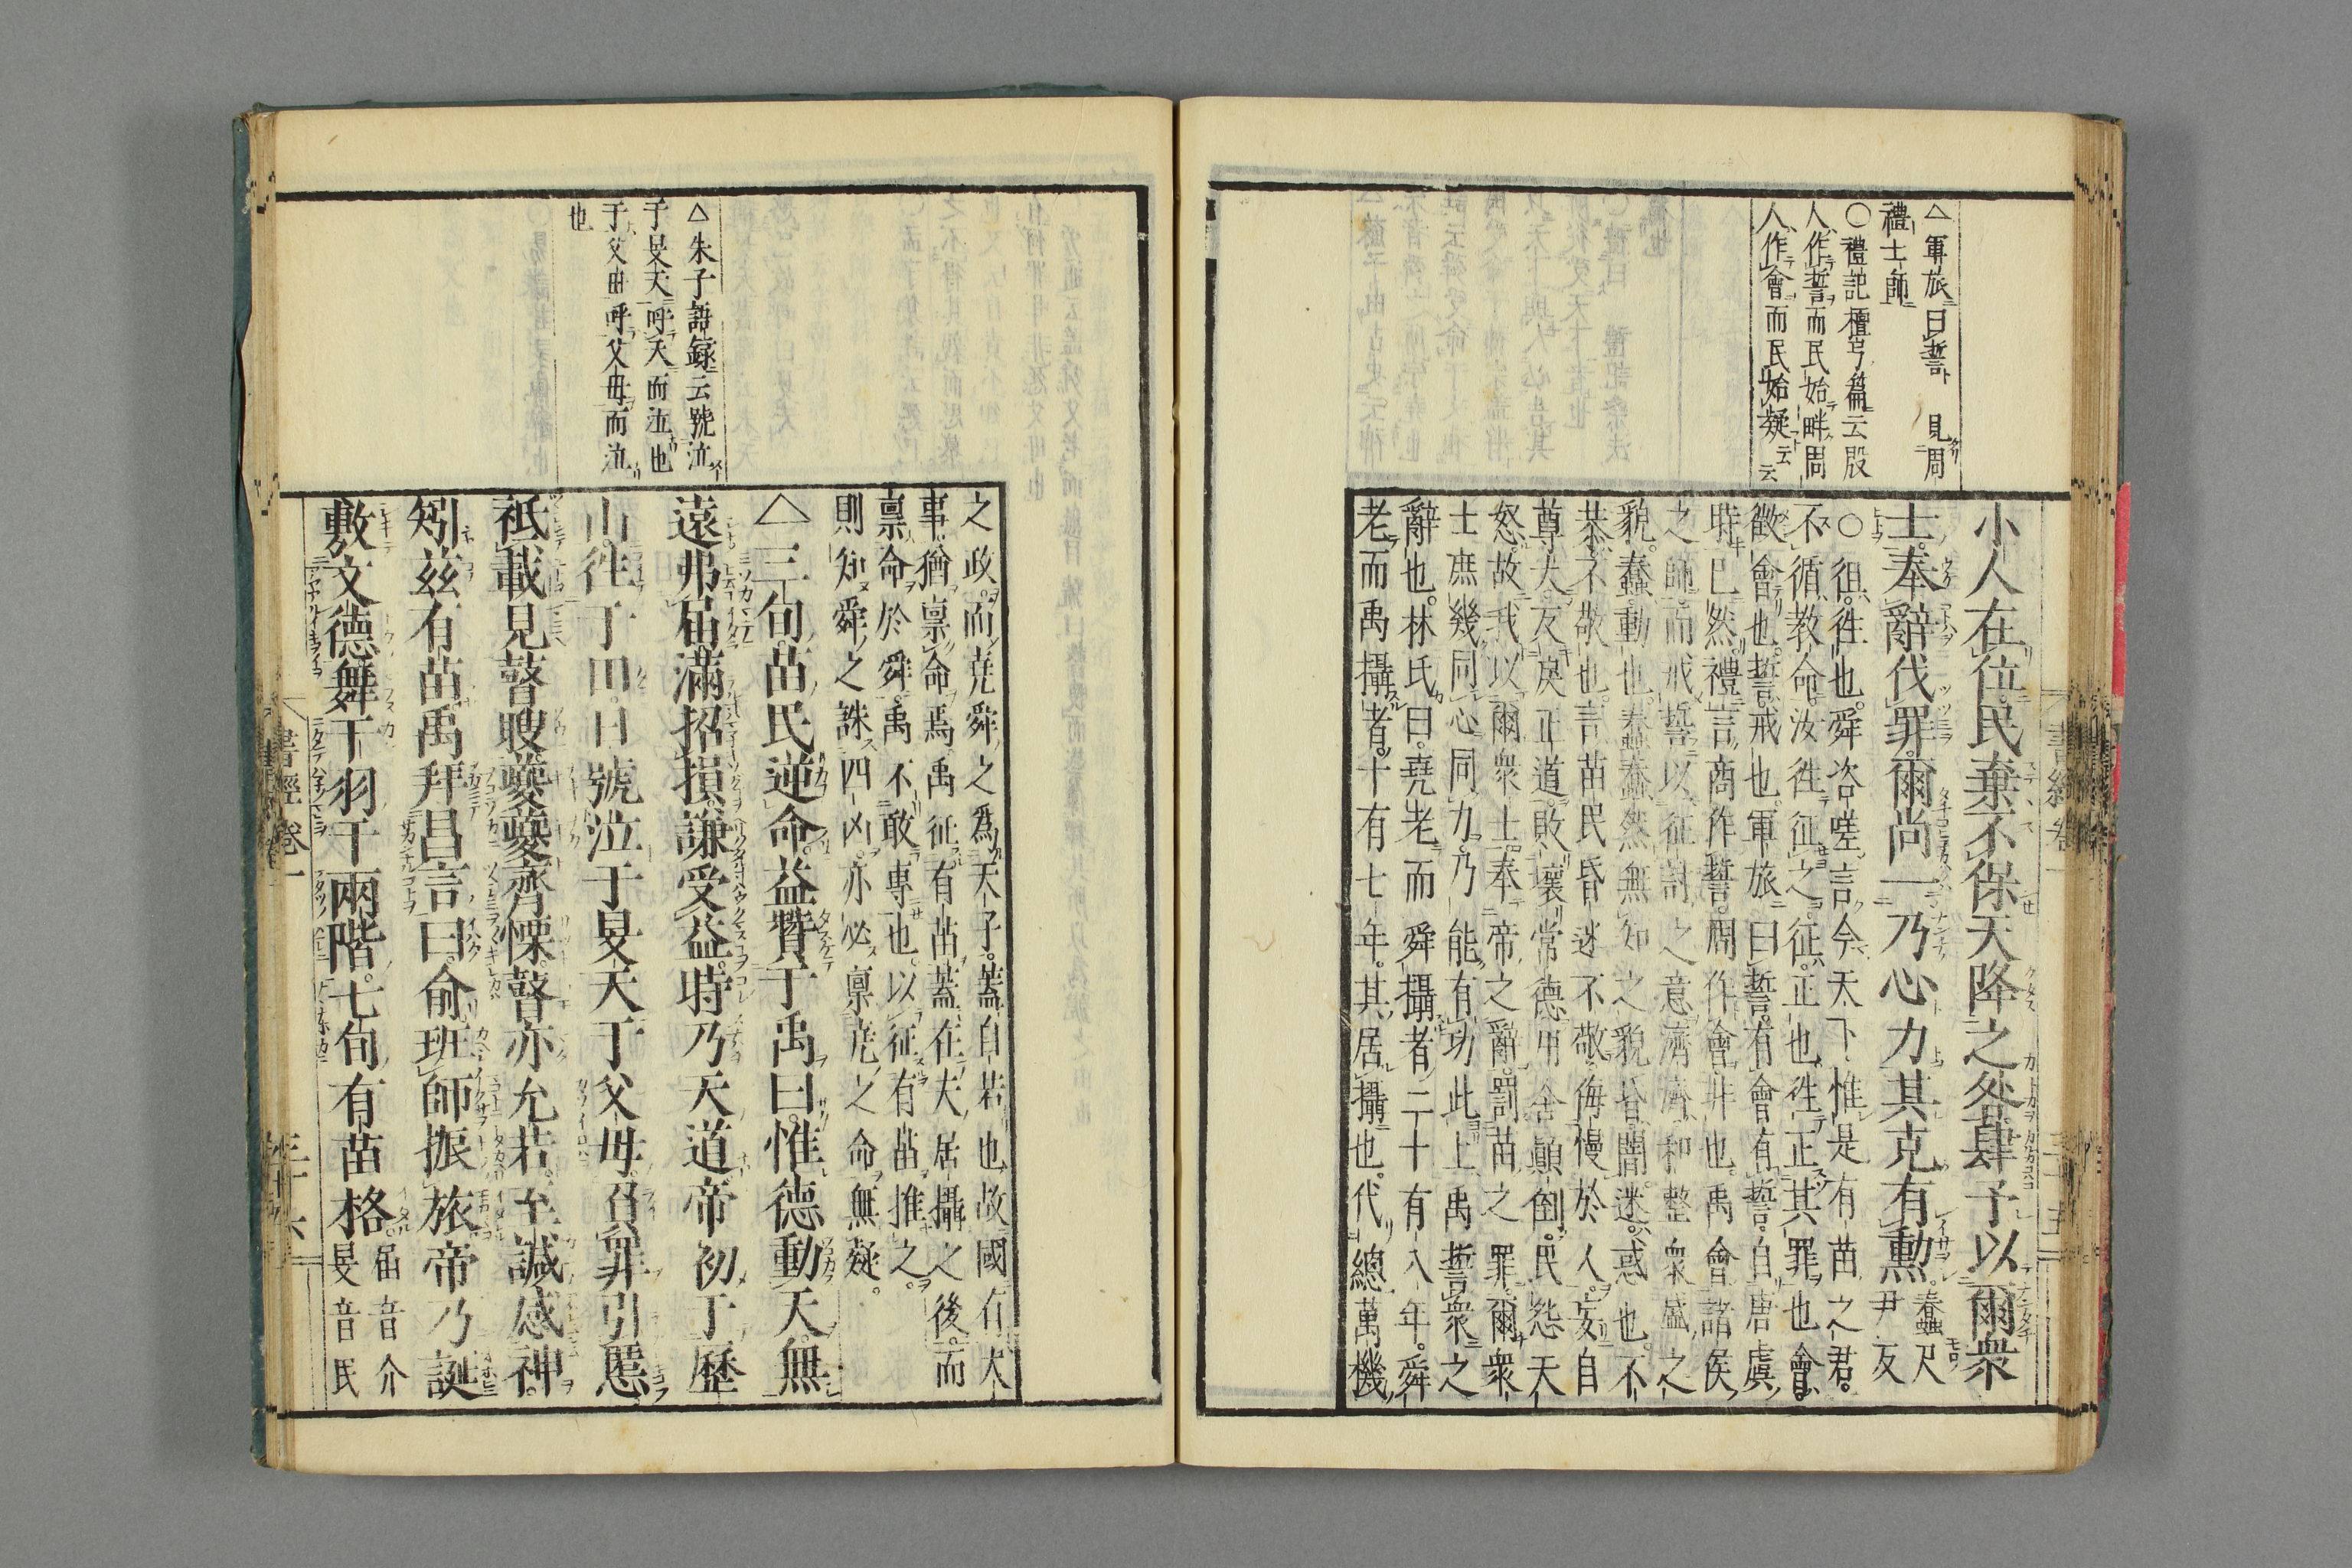 △軍旅曰誓 見周
禮士師
○禮記檀弓篇云殷
人作誓而民始畔周
人作會而民始疑云云
小人在位。民棄不保天降之咎肆予以爾衆
士。奉辭伐罪。爾尚一乃心力其克有勳。蠢尺尹友
○徂。徃也。舜咨嗟言今天下惟是有苗之君。
不循教命。汝徃征之。征。正也。徃正其罪也會。
徵會也。誓。戒也。軍旅曰誓。有會有誓。自唐虞
時已然。禮言。商作誓。周作會。非也。禹會諸侯
之師。而戒誓以征討之意濟濟。和整衆盛之
貌。蠢。動也。蠢蠢然無知之貌昏闇迷。惑也。不
恭不敬也。言苗民昏迷不敬。侮慢於人。妄自
尊大。反戾正道。敗壞常德。用舍顚倒。民怨天
怒。故我以爾衆士。奉帝之辭。罰苗之罪。爾衆
士庶幾同心同力。乃能有功此上禹誓衆之
辭也。林氏曰。堯老而舜攝者二十有八年。舜
老而禹攝者。十有七年。其居攝也。代總萬機
△朱子語録云號泣
于旻天呼天而泣也
于父母呼父母而泣
也
之政。而堯舜之爲天子。蓋自若也故國有大
事。猶稟命焉禹征有苗蓋在夫居攝之後。而
稟命於舜。禹不敢專也。以征有苗推之。
則知舜之誅四凶。亦必稟堯之命無疑。
△三旬苗民逆命。益贊于禹曰。惟德動天。無
遠弗屆。滿招損。謙受益。時乃天道。帝初于歷
山。徃于田。日號泣于旻天于父母。負罪引慝
祗載見瞽瞍夔夔齊慄。瞽亦允若。至諴感神。
矧茲有苗禹拜昌言曰。俞班師振旅帝乃誕
敷文德舞干羽于兩階。七旬有苗格。屆音介旻音民
書經卷一
三十六